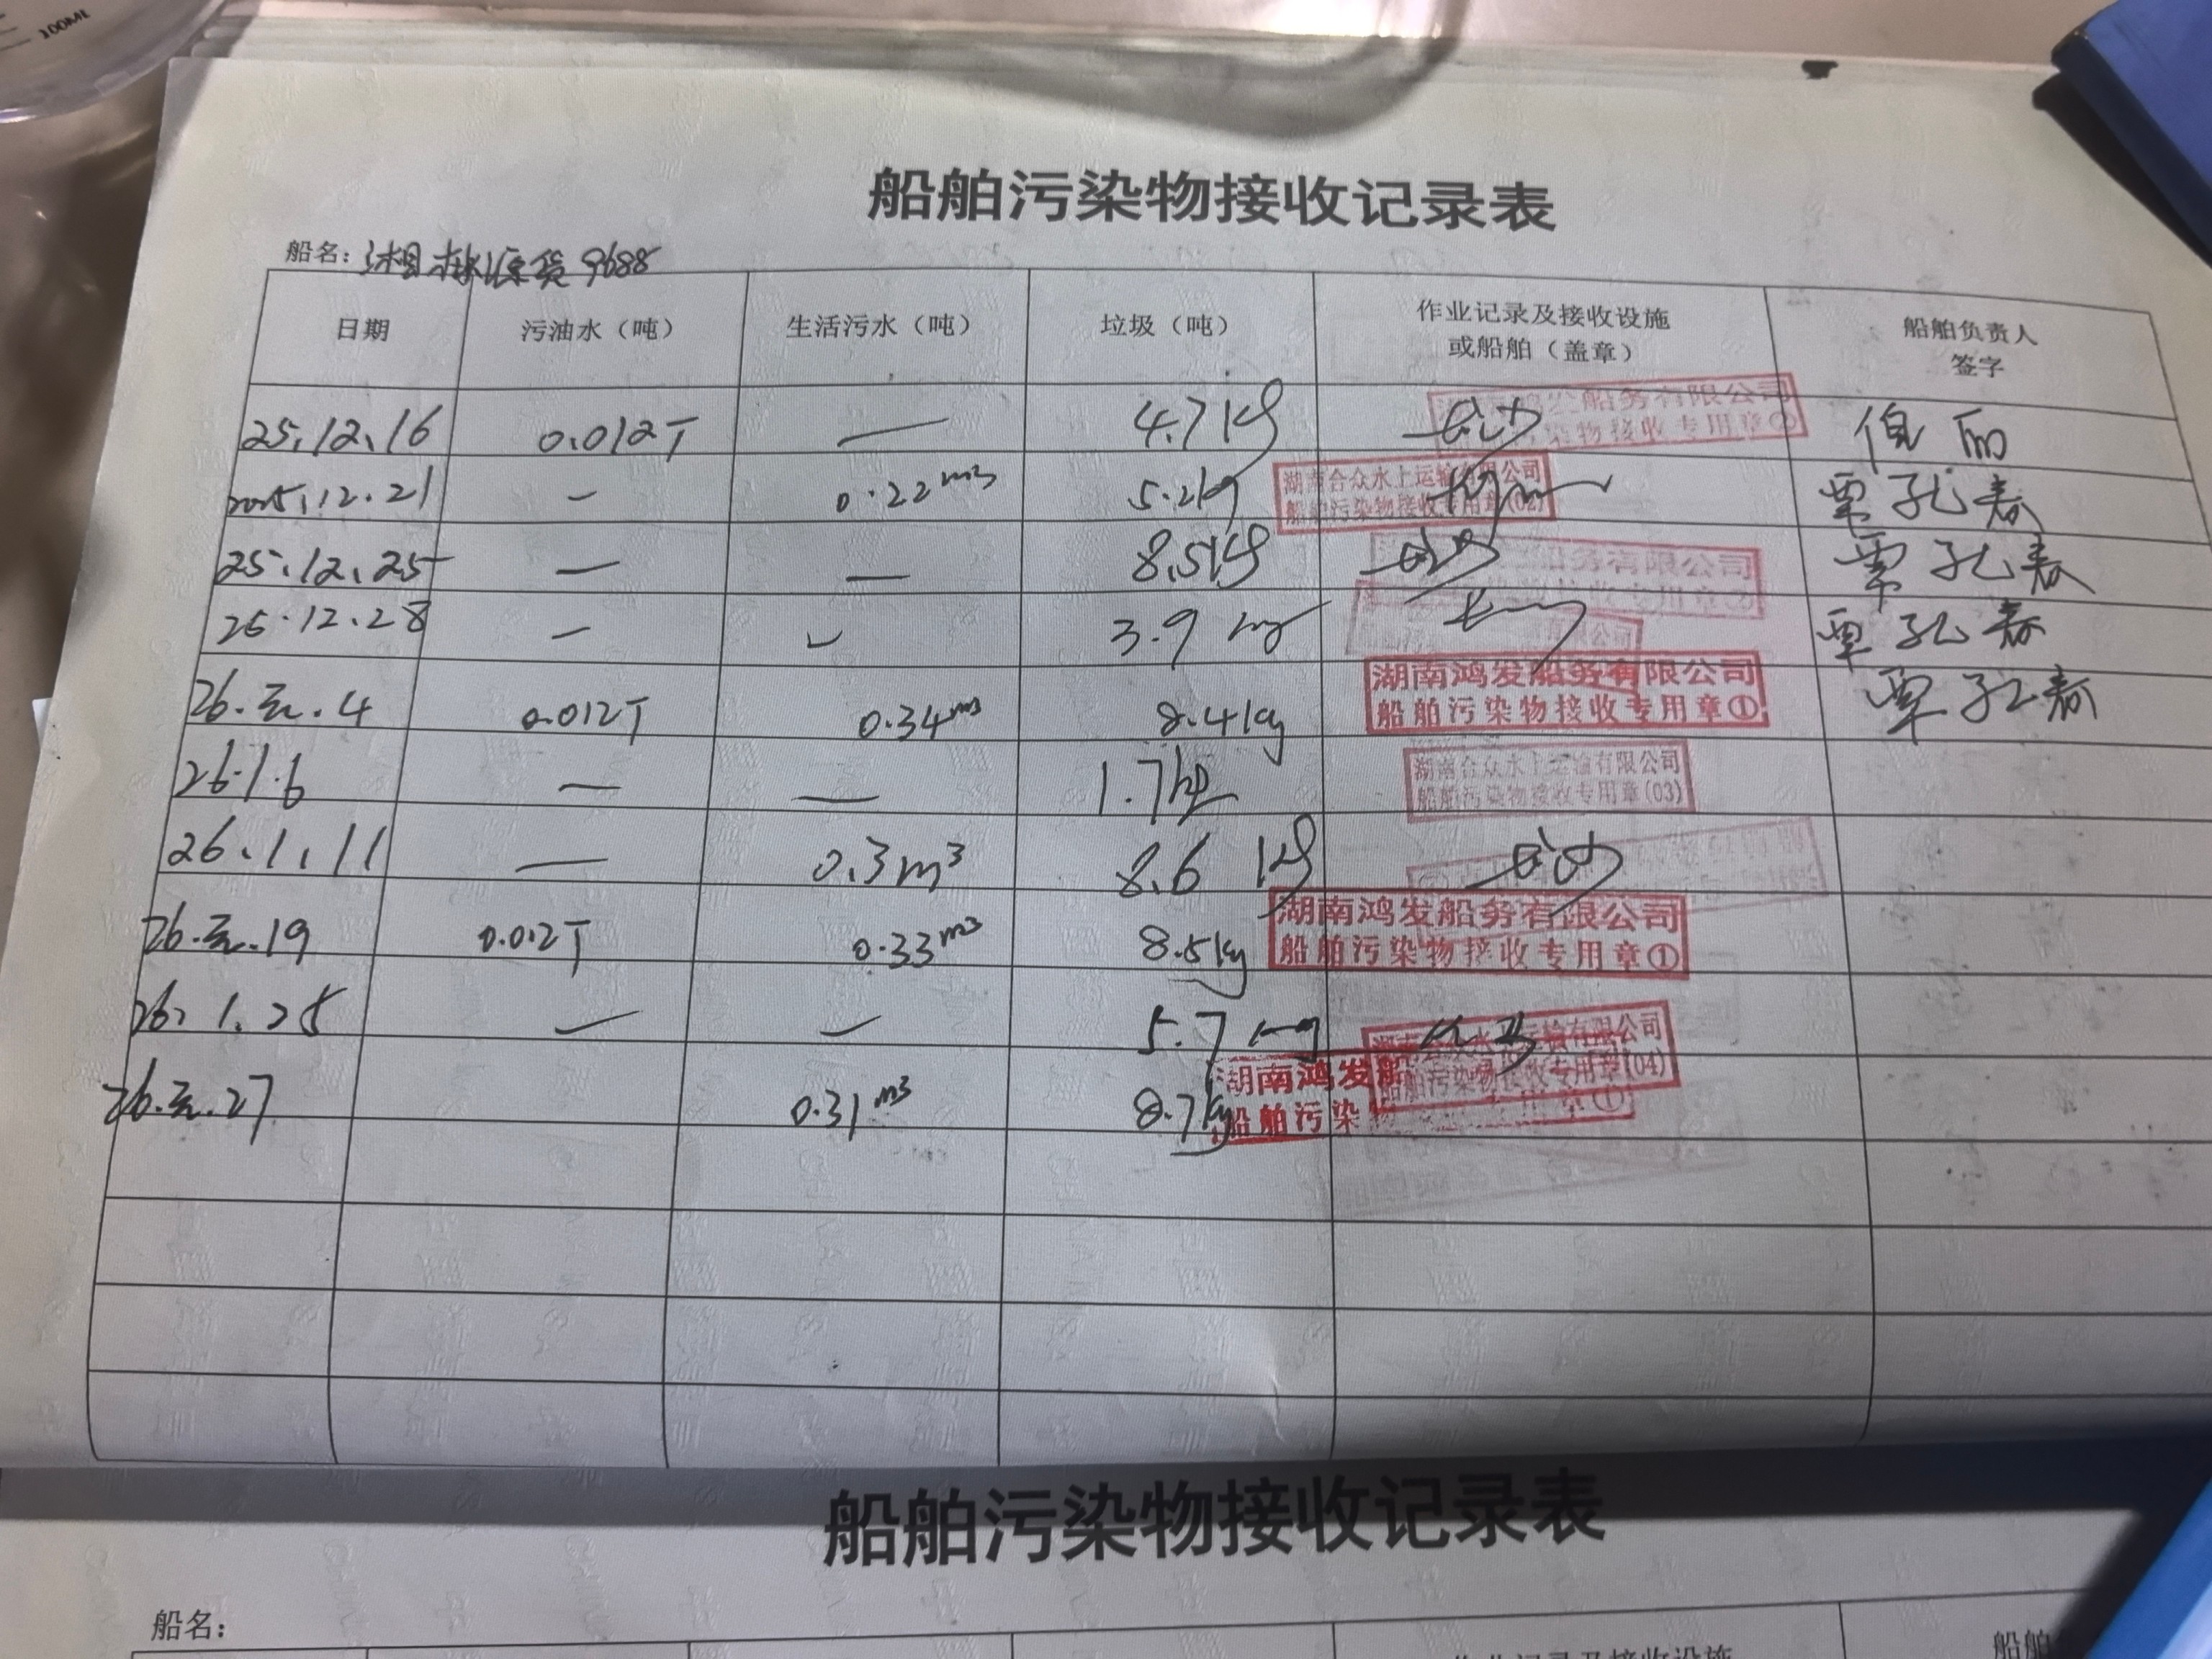 100ML
船舶污染物接收记录表
船名：湘桃源货9688
日期 污油水（吨） 生活污水（吨） 垃圾（吨） 作业记录及接收设施 船舶负责人
或船舶（盖章） 签字
25.12.16 0.012T — 4.7kg
船务有限公司
污染物接收专用章②
2025.12.21 — 0.22m³ 5.2kg 覃孔春
湖南合众水上运输有限公司
船舶污染物接收专用章(02)
25.12.25 — — 8.5kg 覃孔春
船务有限公司
专用章②
25.12.28 — — 3.9kg 覃孔春
有限公司
26.元.4 0.012T 0.34m³ 8.4kg 覃孔春
湖南鸿发船务有限公司
船舶污染物接收专用章①
26.1.6 — — 1.7kg
湖南合众水上运输有限公司
船舶污染物接收专用章(03)
26.1.11 — 0.3m³ 8.6kg
26.元.19 0.012T 0.33m³ 8.5kg
湖南鸿发船务有限公司
船舶污染物接收专用章①
26.1.25 — — 5.7kg
水上运输有限公司
船舶污染物接收专用章(04)
26.元.27 0.31m³ 8.7kg
湖南鸿发船
船舶污染物 专用章①
船舶污染物接收记录表
船名：
作业记录及接收设施 船舶